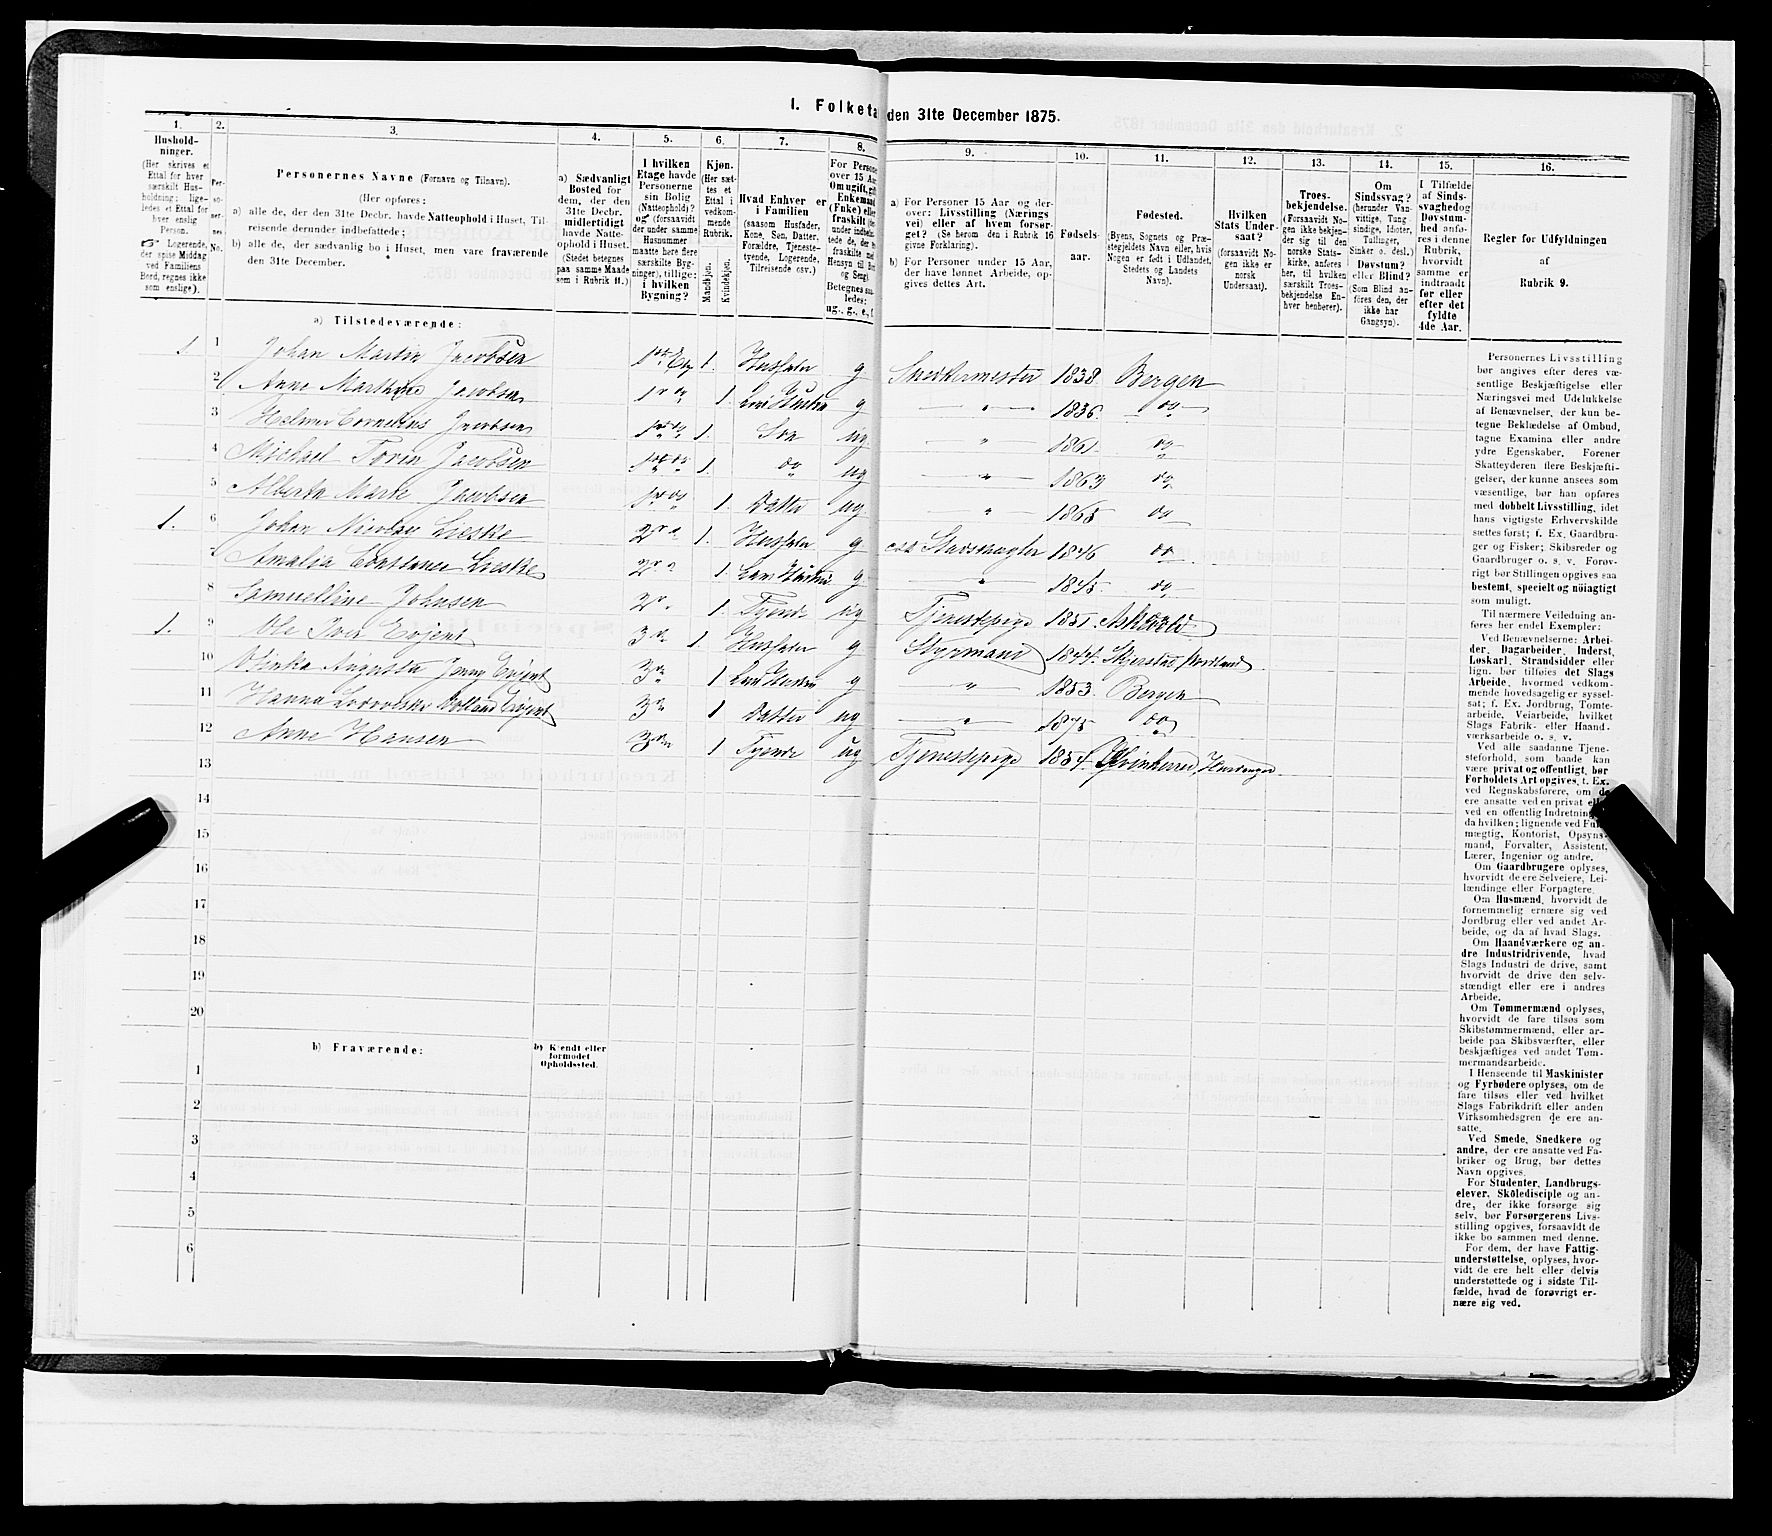 I. Folketæ
den 31te December 1875.
1.
2.
3.
4.
5.
6.
7.
8.
9.
10.
11.
12.
13.
14.
15.
16.
Hushold-
ninger.
(Her skrives et
Ettal for hver
særskilt Hus-
holdning; lige-
ledes et Ettal for
hver enslig
Person.
☞ Logerende,
der spise Middag
ved Familiens
Bord, regnes ikke
som enslige).
Per-
so-
ner-
nes
No.
Personernes Navne (Fornavn og Tilnavn).
(Her opføres:
a) alle de, der den 31te Decbr. havde Natteophold i Huset, Til-
reisende derunder indbefattede;
b) alle de, der sædvanlig bo i Huset, men vare fraværende
den 31te December.
a) Sædvanligt
Bosted for
dem, der den
31te Decbr.
midlertidigt
havde Natte-
ophold i Huset.
(Stedet betegnes
paa samme Maade
som i Rubrik 11.)
I hvilken
Etage havde
Personerne
sin Bolig
(Natteophold)?
og (forsaavidt
der under samme
Husnummer
maatte høre flere
særskilte Byg-
ninger), tillige:
i hvilken
Bygning?
Kjøn.
(Her sæt-
tes et
Ettal i
vedkom-
mende
Rubrik.
Mandkjøn.
Kvindekjøn.
Hvad Enhver er
i Familien
(saasom Husfader,
Kone, Søn, Datter,
Forældre, Tjeneste-
tyende, Logerende,
Tilreisende osv.)
For Persone
over 15 Aa
Om ugift, gift
Enkemand
(Enke) elle
fraskilt (de
under indbefat-
tede de, der e
fraskilte med
Hensyn til Bo
og Seng)
Betegnes saa-
ledes:
ug., g., e., f.
a) For Personer 15 Aar og der-
over: Livsstilling (Nærings-
vei) eller af hvem forsør-
get? (Se herom den i Rubrik 16
givne Forklaring).
b) For Personer under 15 Aar,
der have lønnet Arbeide, op-
gives dettes Art.
Fødsels-
aar.
Fødested.
(Byens, Sognets og Præ-
stegjeldets Navn eller, hvis
Nogen er født i Udlandet,
Stedets og Landets
Navn).
Hvilken
Stats Under-
saat?
(forsaavidt No-
gen ikke er
norsk
Undersaat).
Troes-
bekjendelse.
(Forsaavidt No-
gen ikke bekjen-
der sig til den
norske Stats-
kirke, anføres
her, til hvilken
særskilt Troes-
bekjendelse En-
hver henhører).
Om
Sindssvag?
(herunder Van-
vittige, Tung-
sindige, Idioter,
Tullinger,
Sinker o. desl.)
Døvstum?
eller Blind?
(Som Blind an-
føres den, der
ikke har
Gangsyn).
I Tilfælde
af Sinds-
svaghed og
Døvstum-
hed anfø-
res i denne
Rubrik,
hvorvidt
samme er
indtraadt
før eller
efter det
fyldte
4de Aar.
Regler for Udfyldningen
af
Rubrik 9.
a) Tilstedeværende:
1. 1 Johan Martin Jacobsen 1ste Etg 1. Husfader g Snedkermester 1838 Bergen
2 Anne Marthine Jacobsen 1. Hustru g — " — 1836 do
3 Helmer Cornelius Jacobsen 1. Søn ug — " — 1861 do
4 Michael Jacobsen 1. do ug — " — 1863 do
5 Alberta Marie Jacobsen 1. Datter ug — " — 1865 do
1. 6 Johan Nicolay Lieske 1. Husfader g 1846 do
7 Amalia Constance Lieske 1. Hustru g — " — 1845 do
8 Samuelline Johnsen 1. Tyende ug Tjenestepige 1851 Askvold
1. 9 Ole Iver Evjent 3 1 Husfader g Styrmand 1844 Skjerstad Nordland
10 Augusta Jenny Evjent 3 1 Hustru g — " — 1853 Bergen
11 Hanna Evjent 3 1 Datter ug — " — 1875 do
12 Anne Hansen 3 1 Tyende ug Tjenestepige 1854 Qvinherred, Hardanger
13
14
15
16
17
18
19
20
b) Fraværende:
b) Kjendt eller
formodet
Opholdssted.
1
2
3
4
5
6
Personernes Livsstilling
bør angives efter deres væ-
sentlige Beskjæftigelse eller
Næringsvei med Udelukkelse
af Benævnelser, der kun be-
tegne Beklædelse af Ombud,
tagne Examina eller andre
ydre Egenskaber. Forener
Skatteyderen flere Beskjæfti-
gelser, der kunne ansees som
væsentlige, bør han opføres
med dobbelt Livsstilling, idet
hans vigtigste Erhvervskilde
sættes først; f. Ex. Gaardbru-
ger og Fisker; Skibsreder og
Gaardbruger o. s. v. Forøv-
rigt bør Stillingen opgives saa
bestemt, specielt og nøiagtigt
som muligt.
Til nærmere Veiledning an-
føres her endel Exempler:
Ved Benævnelserne: Arbei-
der, Dagarbeider, Inderst,
Løskarl, Strandsidder eller
lign. bør tilføies det Slags
Arbeide, hvormed vedkom-
mende hovedsagelig er syssel-
sat; f. Ex. Jordbrug, Tomte-
arbeide, Veiarbeide, hvilket
Slags Fabrik- eller Haand-
værksarbeide o. s. v.
Ved alle saadanne Tjene-
steforhold, som baade kan
være privat og offentligt, bør
Forholdets Art opgives, t. Ex.
ved Regnskabsførere, om de
ere ansatte ved en privat ell
ved en offentlig Indretning
da hvilken; lignende ved Ful
mægtig, Kontorist, Opsyns-
mand, Forvalter, Assistent,
Lærer, Ingeniør og andre.
Om Gaardbrugere oplyses,
hvorvidt de ere Selveiere, Lei-
lændinge eller Forpagtere.
Om Husmænd, hvorvidt de
fornemmelig ernære sig ved
Jordbrug eller ved andet Ar-
beide, og da af hvad Slags.
Om Haandværkere og an-
dre Industridrivende, hvad
Slags Industri de drive, samt
hvorvidt de drive den selv-
stændigt eller ere i andres
Arbeide.
Om Tømmermænd oplyses,
hvorvidt de fare tilsøs som
Skibstømmermænd, eller ar-
beide paa Skibsværfter, eller
beskjæftiges ved andet Tøm-
mermandsarbeide.
I Henseende til Maskinister
og Fyrbødere oplyses, om de
fare tilsøs eller ved hvilket
Slags Fabrikdrift eller anden
Virksomhedsgren de ere an-
satte.
Ved Smede, Snedkere og
andre, der ere ansatte ved Fa-
briker og Brug, bør dettes
Navn opgives.
For Studenter, Landbrugs-
elever, Skoledisciple og an-
dre, der ikke forsørge sig
selv, bør Forsørgerens Livs-
stilling opgives, forsaavidt de
ikke bo sammen med denne.
For dem, der have Fattig-
understøttelse, oplyses, hvor-
vidt de ere helt eller delvis
understøttede og i sidste Til-
fælde, hvad de forøvrigt er-
nære sig ved.